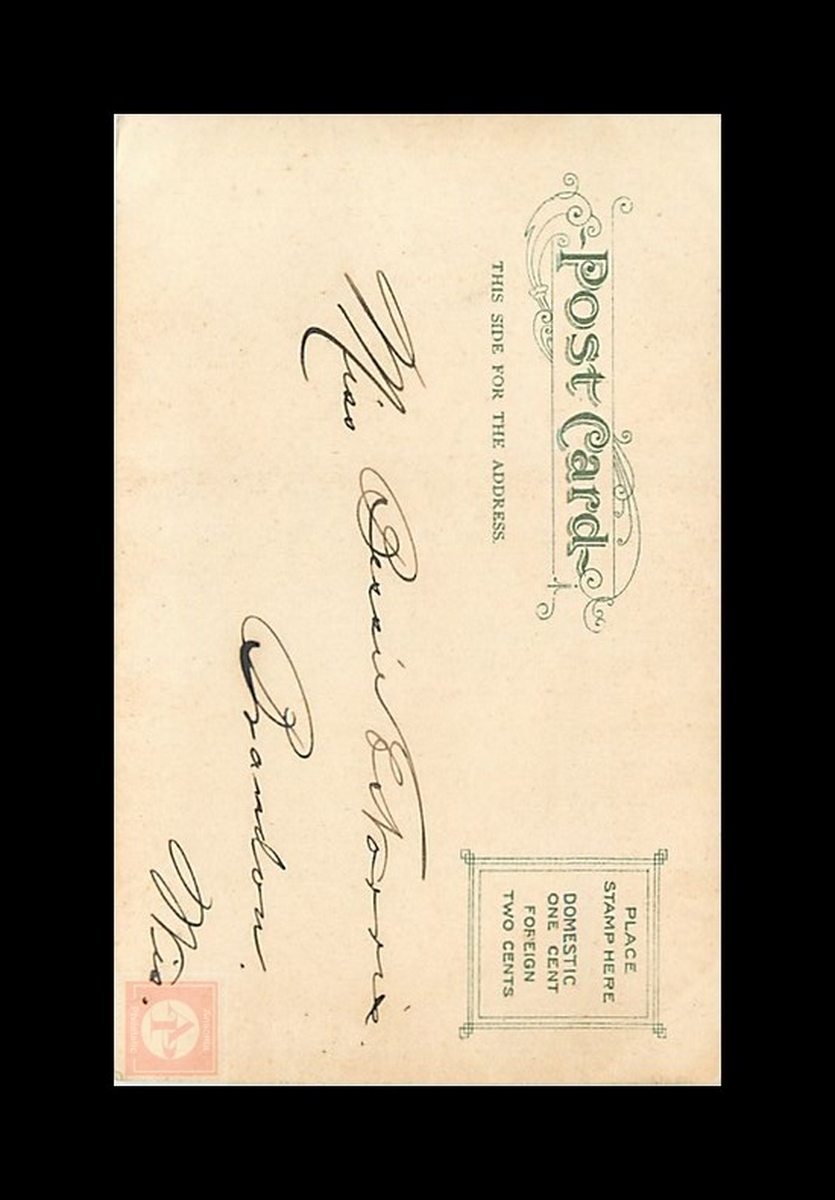 Post Card
THIS SIDE FOR THE ADDRESS.
PLACE
STAMP HERE
DOMESTIC
ONE CENT
FOREIGN
TWO CENTS
Miss Bessie E Norris.
Crandon.
Wis.